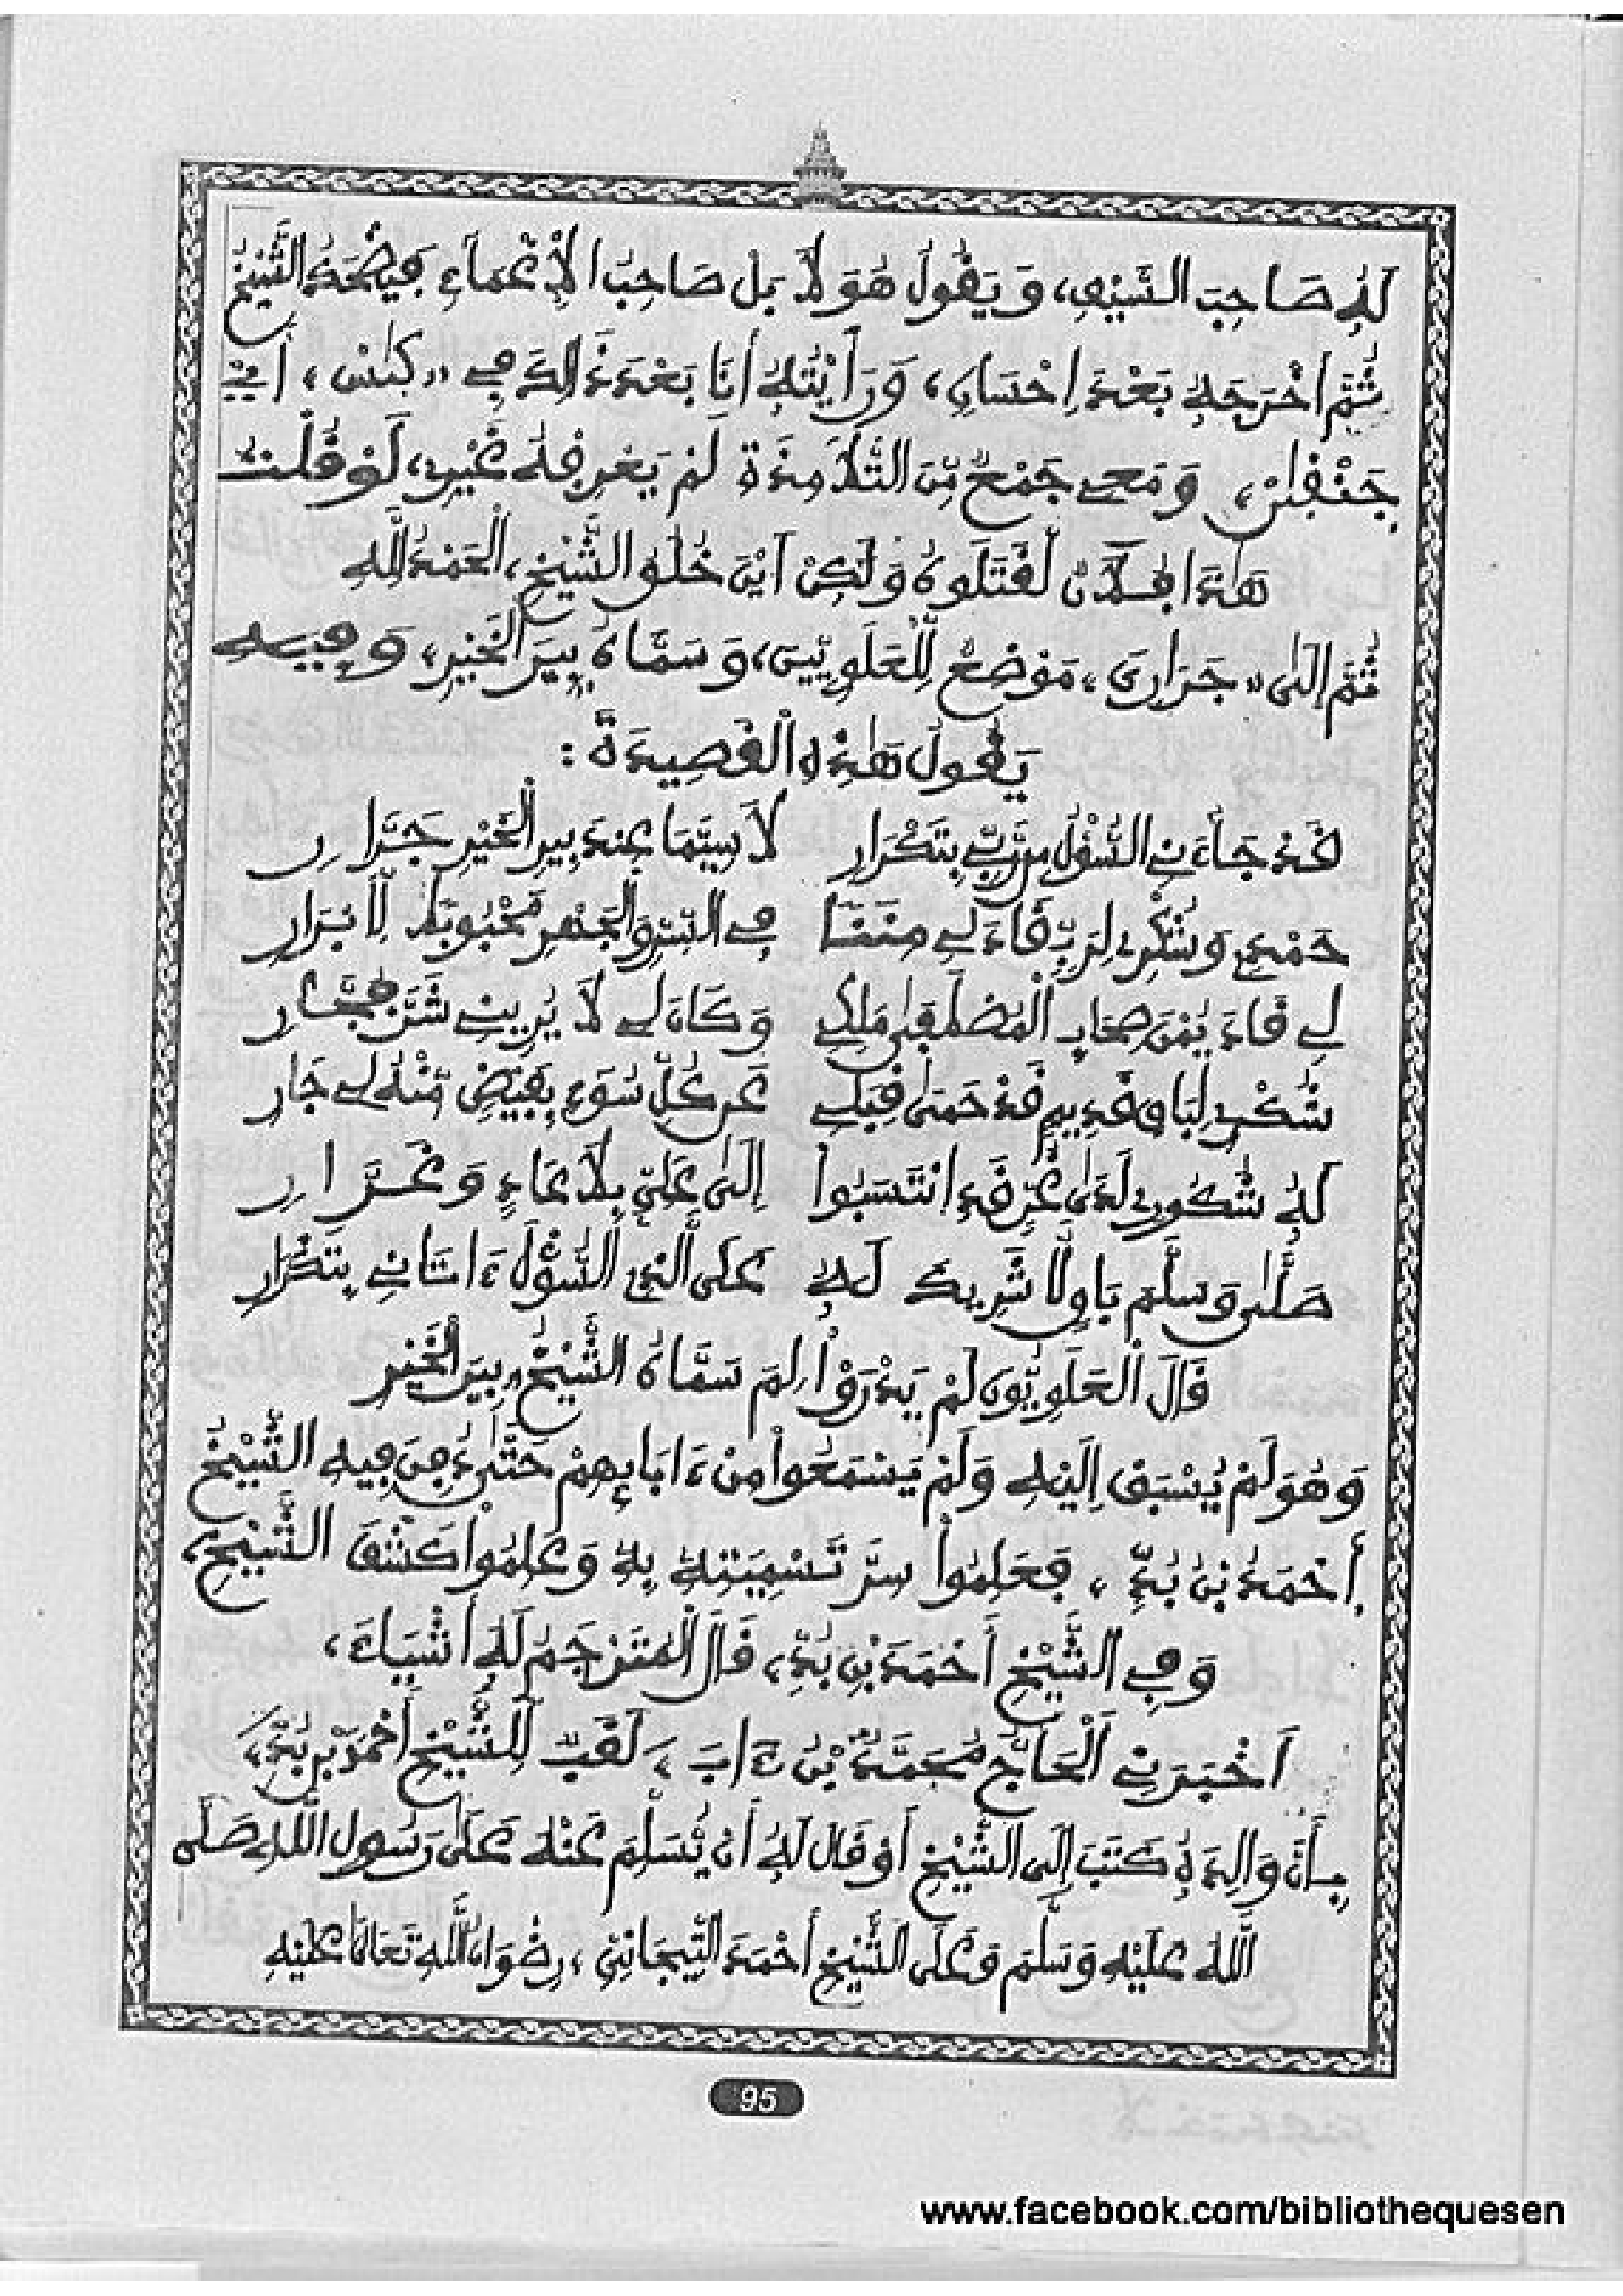 لَهُ صَاحِبَ السَّيْفِ، وَيَقُولُ هُوَ لَا بَلْ صَاحِبُ الْإِغْمَاءِ فَيَضْحَكُ الشَّيْخُ
ثُمَّ أَخْرَجَهُ بَعْدَ إِحْسَانٍ، وَرَأَيْتُهُ أَنَا بَعْدَ ذَلِكَ فِي «كَبَسْ» أَيْ
وَمَعِي جَمْعٌ مِّنَ التَّلَامِذَةِ لَمْ يَعْرِفْهُ غَيْرِي، لَوْ قُلْتُ
هٰذَا فُلَانٌ لَقَتَلُوهُ وَلَكِنْ أَيْنَ خُلُقُ الشَّيْخِ، الْحَمْدُ لِلَّهِ
ثُمَّ إِلَى «جَرَارِي» مَوْضِعٌ لِلْعَلَوِيِّينَ، وَسَمَّاهُ بِيرَ الْخَيْرِ، وَفِيهِ
يَقُولُ هٰذِهِ الْقَصِيدَةَ :
قَدْ جَاءَنِي السُّؤْلُ مِن رَّبِّي بِتَكْرَارِ لَا سِيَّمَا عِندَ بِيرِ الْخَيْرِ جَرَّارِ
حَمْدِي وَشُكْرِي لِرَبٍّ قَادَ لِي مِنَنًا فِي السِّرِّ وَالْجَهْرِ مَحْبُوبَاتِ لِأَبْرَارِ
لِي قَادَ يُمْنَ صِحَابِ الْمُصْطَفَى مَلِكِي وَكَانَ لِي لَا يُرِينِي شَرَّ فُجَّارِ
شُكْرِي لِبَاقٍ قَدِيمٍ قَدْ حَمَى قِبَلِي عَن كُلِّ سُوءٍ بِفَيْضٍ مِّنْهُ لِي جَارِ
لَهُ شُكُورِي لَدَى غُرٍّ قَدِ انْتَسَبُوا إِلَى عَلِيٍّ بِلَا عَادٍ وَغَرَّارِ
صَلَّى وَسَلَّمَ بَاقٍ لَّا شَرِيكَ لَهُ عَلَى الَّذِي السُّؤْلُ ءَاتَانِي بِتَكْرَارِ
قَالَ الْعَلَوِيُّونَ لَمْ يَدْرُوْا لِمَ سَمَّاهُ الشَّيْخُ «بِيرَ الْخَيْرِ»
وَهُوَ لَمْ يُسْبَقْ إِلَيْهِ وَلَمْ يَسْمَعُوا مِنْ ءَابَائِهِمْ حَتَّى دُفِنَ فِيهِ الشَّيْخُ
أَحْمَدُ بْنُ بُدِّ، فَعَلِمُوا سِرَّ تَسْمِيَتِهِ بِهِ وَعَلِمُوا كَشْفَ الشَّيْخِ،
وَفِي الشَّيْخِ أَحْمَدَ بْنِ بُدِّ، قَالَ الْمُتَرْجَمُ لَهُ أَشْيَاءَ،
أَخْبَرَنِي الْحَاجُّ مُحَمَّدُ بْنُ دَابَ، لَقَبٌ لِلشَّيْخِ أَحْمَدَ بْنِ بُدِّ،
بِأَنَّ وَالِدَهُ كَتَبَ إِلَى الشَّيْخِ أَوْ قَالَ لَهُ أَن يُّسَلِّمَ عَنْهُ عَلَى رَسُولِ اللهِ صَلَّى
اللهُ عَلَيْهِ وَسَلَّمَ وَعَلَى الشَّيْخِ أَحْمَدَ التِّيجَانِيِّ، رِضْوَانُ اللهِ تَعَالَى عَلَيْهِ
95
www.facebook.com/bibliothequesen